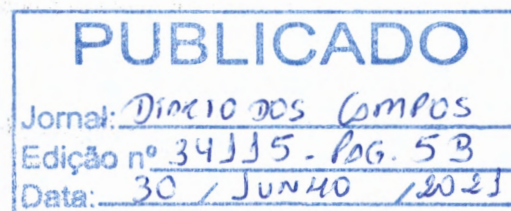 PUBLICADO
Jornal: DIÁRIO DOS CAMPOS
Edição nº 34115 - PÁG. 5B
Data: 30 / JUNHO / 2021